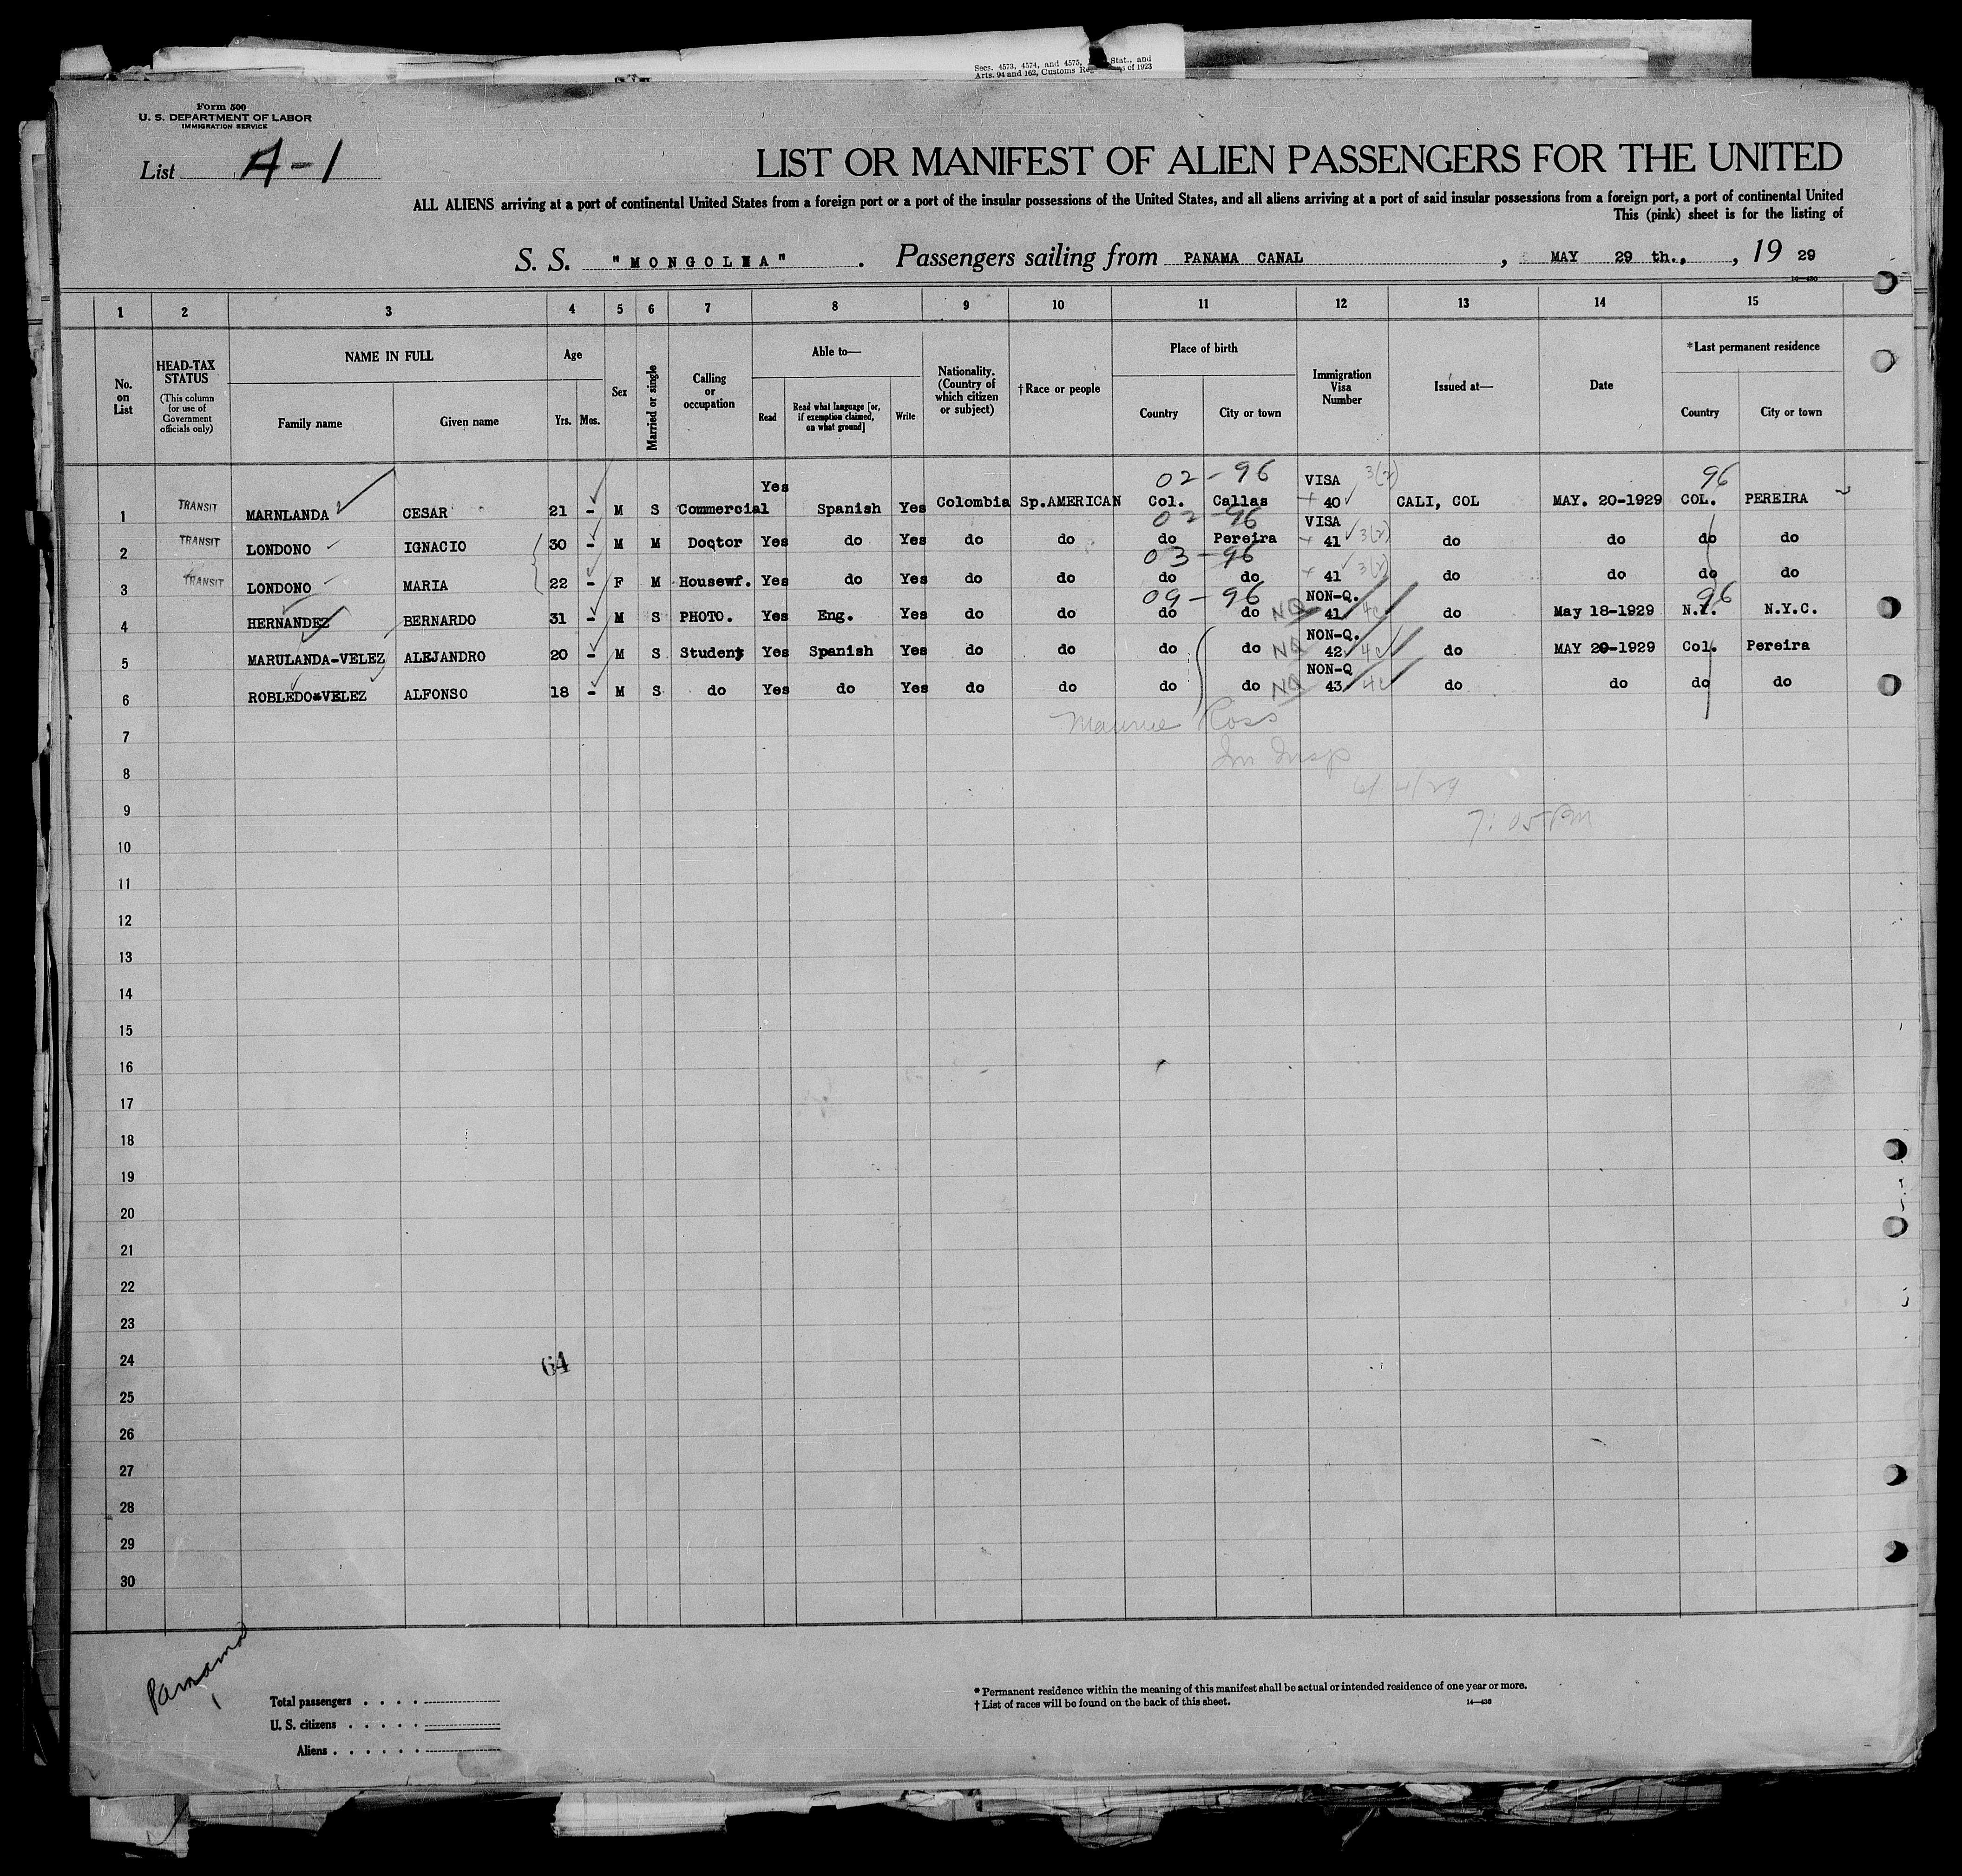 Secs. 4573, 4574, and 4575, Stat., and
Arts. 94 and 162, Customs of 1923
Form 500
U. S. DEPARTMENT OF LABOR
IMMIGRATION SERVICE
List A-1
LIST OR MANIFEST OF ALIEN PASSENGERS FOR THE UNITED
ALL ALIENS arriving at a port of continental United States from a foreign port or a port of the insular possessions of the United States, and all aliens arriving at a port of said insular possessions from a foreign port, a port of continental United
This (pink) sheet is for the listing of
S. S. "MONGOLIA". Passengers sailing from PANAMA CANAL, MAY 29 th., , 19 29
1 2 3 4 5 6 7 8 9 10 11 12 13 14 15
No. on List
HEAD-TAX STATUS
(This column for use of Government officials only)
NAME IN FULL
Family name Given name
Age
Yrs. Mos.
Sex
Married or single
Calling or occupation
Able to—
Read Read what language [or, if exemption claimed, on what ground] Write
Nationality. (Country of which citizen or subject)
†Race or people
Place of birth
Country City or town
Immigration Visa Number
Issued at—
Date
*Last permanent residence
Country City or town
02-96 3(2) 96
1 TRANSIT MARNLANDA CESAR 21 - M S Commercial Yes Spanish Yes Colombia Sp.AMERICAN Col. Callas VISA 40 CALI, COL MAY. 20-1929 COL. PEREIRA
02-96
2 TRANSIT LONDONO IGNACIO 30 - M M Doqtor Yes do Yes do do do Pereira VISA 41 3(2) do do do do
03-96
3 TRANSIT LONDONO MARIA 22 - F M Housewf. Yes do Yes do do do do 41 3(2) do do do do
09-96 96
4 HERNANDEZ BERNARDO 31 - M S PHOTO. Yes Eng. Yes do do do do NQ NON-Q. 41 4c do May 18-1929 N.Y. N.Y.C.
5 MARULANDA-VELEZ ALEJANDRO 20 - M S Student Yes Spanish Yes do do do do NQ NON-Q. 42 4c do MAY 20-1929 Col. Pereira
6 ROBLEDO-VELEZ ALFONSO 18 - M S do Yes do Yes do do do do NQ NON-Q 43 4c do do do do
Maurice Ross
7
Im Insp
8
6/4/29
9
7:05 PM
10
11
12
13
14
15
16
17
18
19
20
21
22
23
24
64
25
26
27
28
29
30
Panama
Total passengers
U. S. citizens
Aliens
* Permanent residence within the meaning of this manifest shall be actual or intended residence of one year or more.
† List of races will be found on the back of this sheet.
14—430